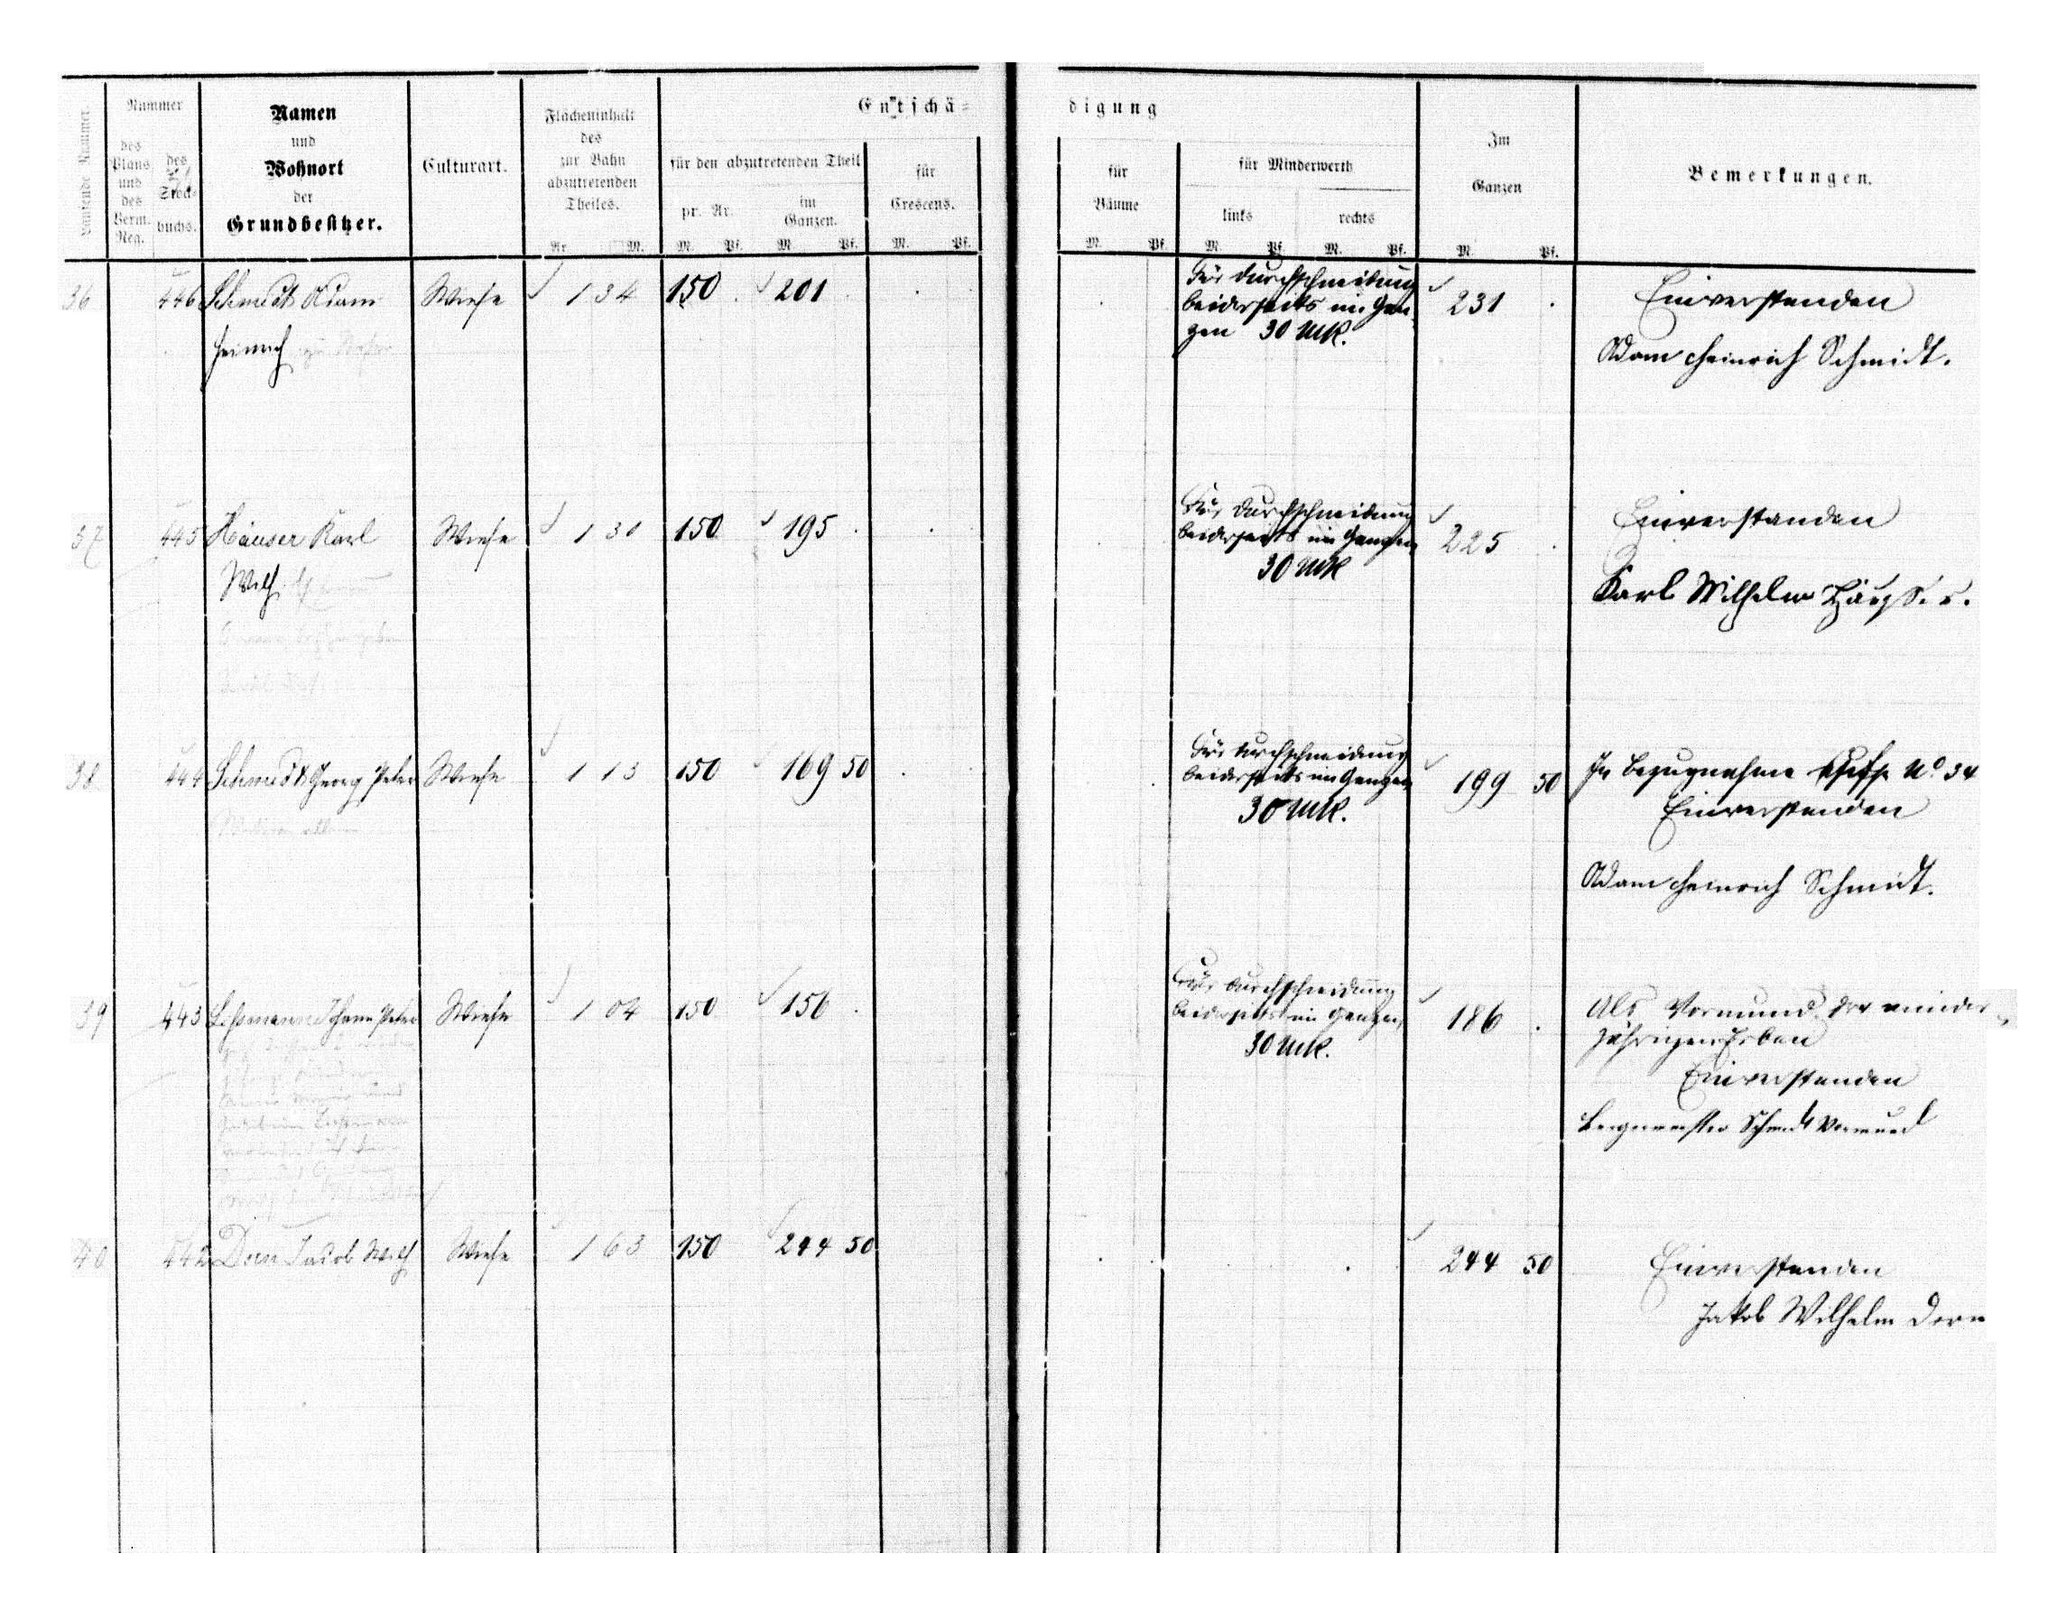 Laufende Nummer.
Nummer
des Plans und des Verm. Reg.
des Stock-buchs.
Namen
und
Wohnort
der
Grundbesitzer.
Culturart.
Flächeninhalt
des
zur Bahn
abzutretenden
Theiles.
Ar. M.
Entschä=
digung
für den abzutretenden Theil
pr. Ar.
M. Pf.
im
Ganzen.
M. Pf.
für
Crescens.
M. Pf.
für
Bäume
M. Pf.
für Minderwerth
links rechts
M. Pf. M. Pf.
Im
Ganzen
M. Pf.
Bemerkungen.
36 446 Schmidt Adam Wiese 1 34 150 201
Heinrich
Für Durchschneidung
beiderseits im Gan-
zen 30 Mk.
231
Einverstanden
Adam Heinrich Schmidt.
37 445 Häuser Karl Wiese 1 30 150 195
Wilh.
Für Durchschneidung
beiderseits im Ganzen
30 Mk
225
Einverstanden
Karl Wilhelm Häuser.
38 444 Schmidt Georg Peter Wiese 1 13 150 169 50
Für Durchschneidung
beiderseits im Ganzen
30 Mk.
199 50
In Bezugnahme No 34
Einverstanden
Adam Heinrich Schmidt.
39 443 Johann Peter Wiese 1 04 150 156
Für Durchschneidung
beiderseits im Ganzen
30 Mk.
186
Als Vormund der minder-
jährigen Erben
Einverstanden
Bergmeister Schmidt Vormund
40 442 Dorn Jacob Wilh Wiese 1 63 150 244 50
244 50
Einverstanden
Jakob Wilhelm Dorn